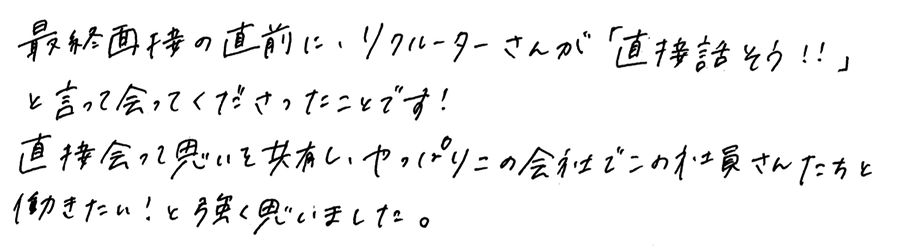 最終面接の直前に、リクルーターさんが「直接話そう!!」
と言って会ってくださったことです!
直接会って思いを共有し、やっぱりこの会社でこの社員さんたちと
働きたい!と強く思いました。